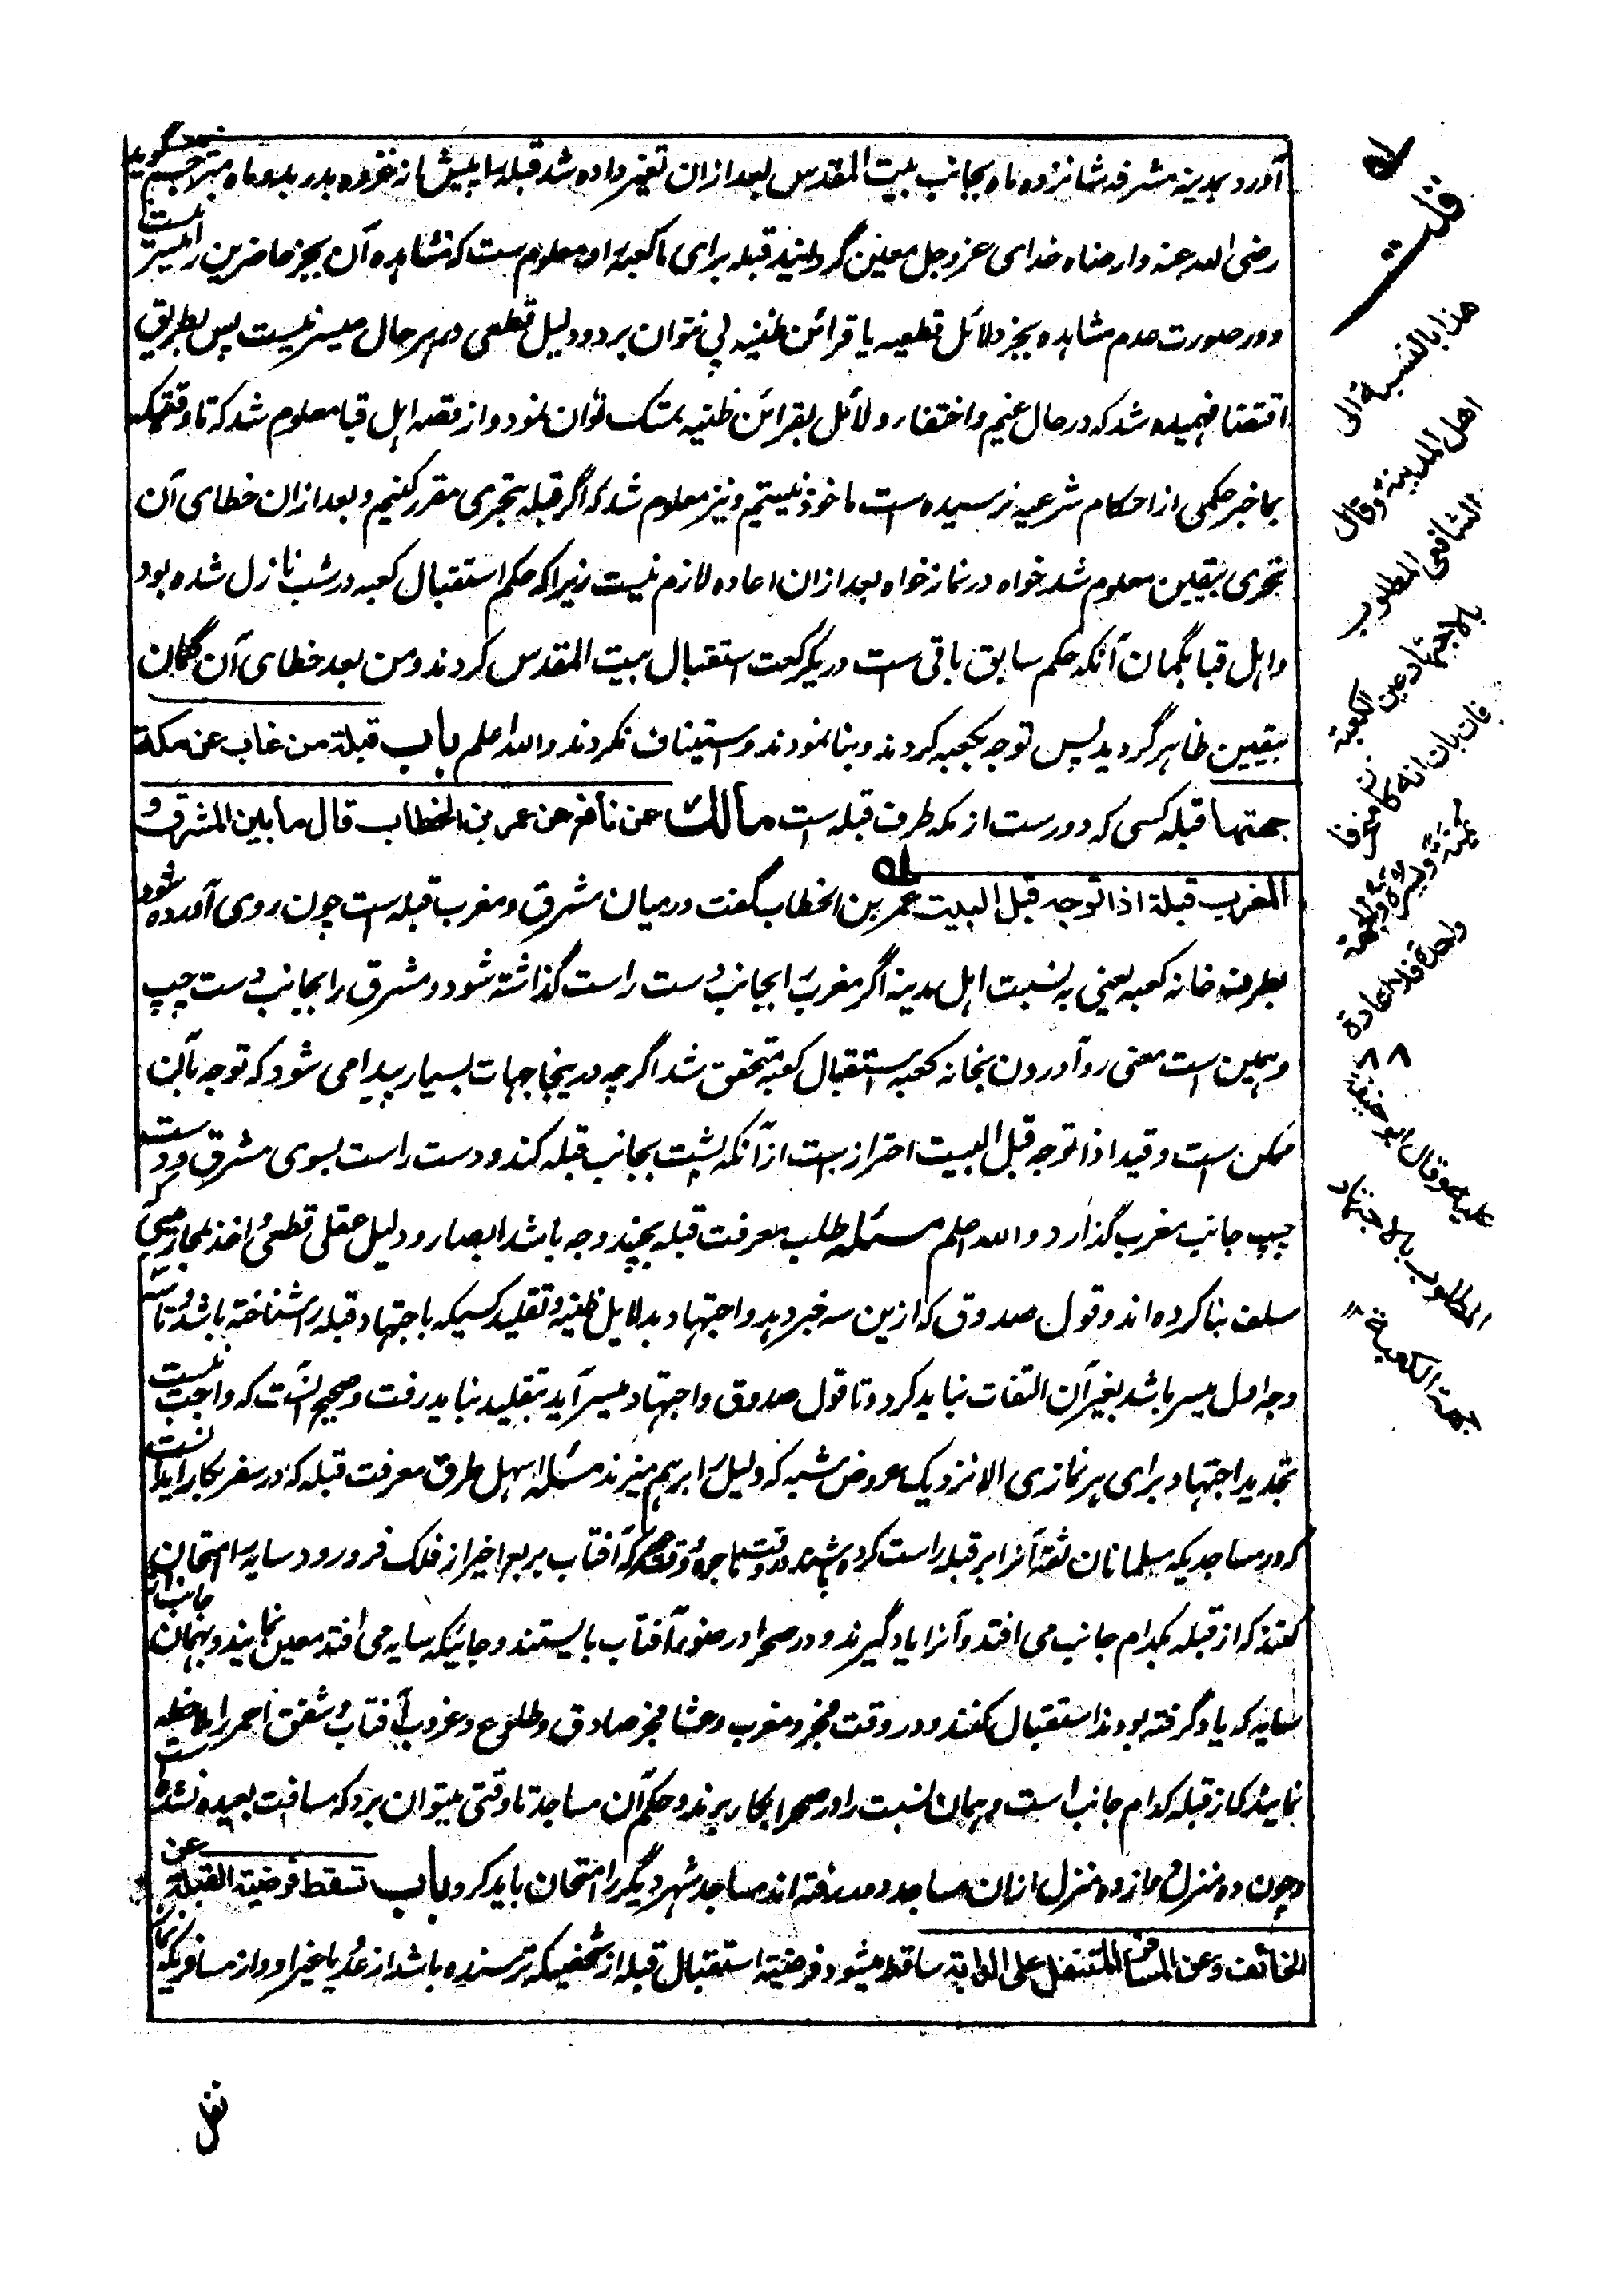 آورد بمدینه مشرفه شانزده ماه بجانب بیت المقدس بعد ازان تغیر داده شد قبله را پیش از غزوه بدر بدو ماه مترجم میگوید
رضی الله عنه وارضاه خدای عزوجل معین گردانید قبله برای ما کعبه و معلوم ست که مشاهده آن بجز حاضرین را میسر نیست
و در صورت عدم مشاهده بجز دلائل قطعیه یا قرائن ظنیه پی نتوان برد و دلیل قطعی در هر حال میسر نیست پس بطریق
اقتضا فهمیده شد که در حال غیم و اختفاء دلائل بقرائن ظنیه تمسک توان نمود و از قصه اهل قبا معلوم شد که تا وقتیکه
بما خبر حکمی از احکام شرعیه نرسیده است ماخوذ نیستیم و نیز معلوم شد که اگر قبله بتحری مقرر کنیم و بعد ازان خطای آن
تحری بیقین معلوم شد خواه در نماز خواه بعد ازان اعاده لازم نیست زیرا که حکم استقبال کعبه در شب نازل شده بود
و اهل قبا بگمان آنکه حکم سابق باقی ست در یکرکعت استقبال بیت المقدس کردند و من بعد خطای آن گمان
بیقین ظاهر گردید پس توجه بکعبه کردند و بنا نمودند و استیناف نکردند والله اعلم باب قبلة من غاب عن مكة
جهتها قبله کسی که دور ست از مکه طرف قبله است مالك عن نافع عن عمر بن الخطاب قال ما بين المشرق و
المغرب قبلة اذا توجه قبل البيت عمر بن الخطاب گفت درمیان مشرق و مغرب قبله است چون روی آورده شود
بطرف خانه کعبه یعنی به نسبت اهل مدینه اگر مغرب را بجانب دست راست گذاشته شود و مشرق را بجانب دست چپ
و همین است معنی رو آوردن بخانه کعبه استقبال کعبه متحقق شد اگرچه درینجا جهات بسیار پیدا می شود که توجه بآن
ممکن است و قید اذا توجه قبل البیت احتراز ست از آنکه پشت بجانب قبله کند و دست راست بسوی مشرق و دست
چپ جانب مغرب گذارد والله اعلم مسئله طلب معرفت قبله بچند وجه باشد ابصار و دلیل عقلی قطعی و اخذ بمحاریبی که
سلف بنا کرده اند و قول صدوق که ازین سه خبر دهد و اجتهاد بدلایل ظنیه و تقلید کسیکه باجتهاد قبله را شناخته باشد و تا سه
وجه اول میسر باشد بغیر آن التفات نباید کرد و تا قول صدوق و اجتهاد میسر آید بتقلید نباید رفت و صحیح آنست که واجب نیست
تجدید اجتهاد برای هر نمازی الا نزدیک عروض شبه که دلیل را برهم میزند مسئله اسهل طرق معرفت قبله که در سفر بکار آید آنست
که در مساجدیکه مسلمانان ثقة آنرا بر قبله راست کرده باشند در وقت هاجره و وقت عصر که آفتاب بربع اخیر از فلک فرو رود سایه را امتحان
کنند که از قبله بکدام جانب می افتد و آنرا یاد گیرند و در صحرا در ضوء آفتاب بایستند و جائیکه سایه می افتد معین نمایند و بهمان جانب از
سایه که یاد گرفته بودند استقبال کنند و در وقت فجر و مغرب و عشا فجر صادق و طلوع و غروب آفتاب و شفق احمر را ملاحظه
نمایند که از قبله کدام جانب است و بهمان نسبت را در صحرا بکار برند و حکم آن مساجد تا وقتی میتوان برد که مسافت بعیده نشده است
و چون ده منزل دوازده منزل ازان مساجد دور رفته اند مساجد شهر دیگر را امتحان باید کرد باب تسقط فرضية القبلة عن
الخائف وعن المسافر المتنفل على الدابة ساقط میشود فرضیة استقبال قبله از شخصیکه ترسنده باشد از عدو یا غیر او و از مسافریکه نماز
نفل
له
قلت
هذا بالنسبة الى
اهل المدينة وقال
الشافعي المطلوب
بالاجتهاد عين الكعبة
فان بان انه كان منحرفا
يمنة ويسرة والجهة
واحدة فلا اعادة
عليه وقال ابو حنيفة
المطلوب بالاجتهاد
جهة الكعبة ۱۲